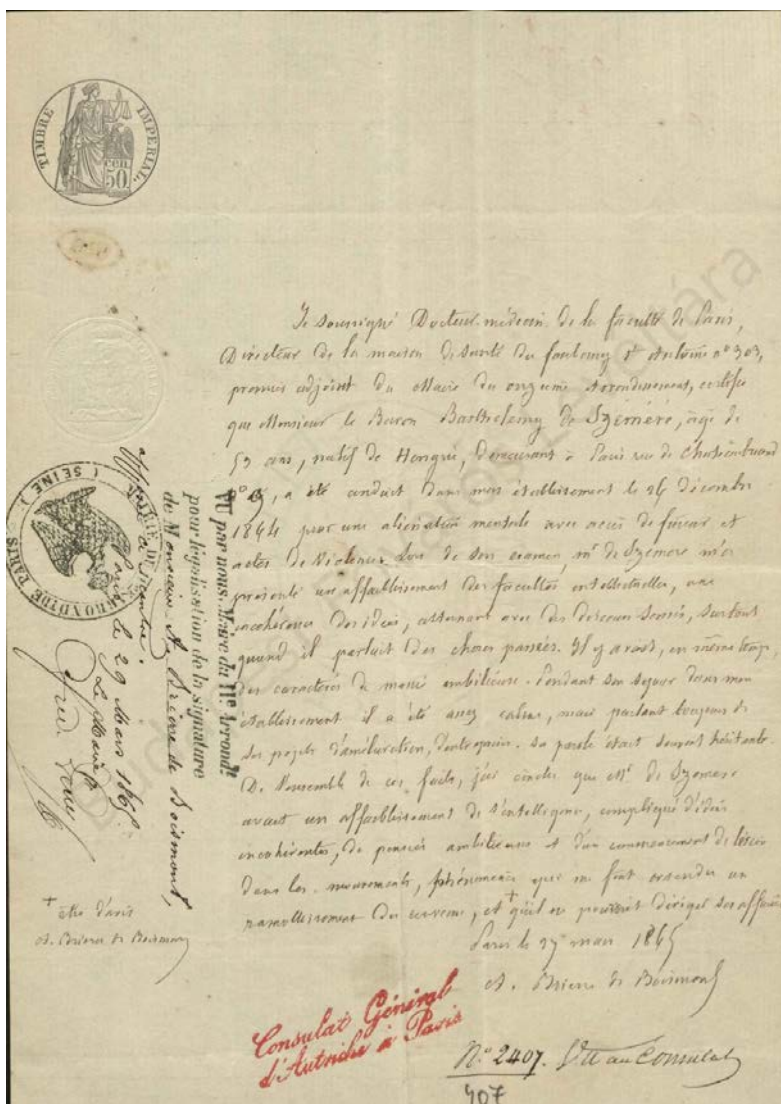 TIMBRE IMPERIAL
50
CEN
Je soussigné Docteur-médecin de la faculté de Paris,
Directeur de la maison de santé du faubourg St Antoine n° 303,
premier adjoint du Maire du onzième Arrondissement, certifie
que Monsieur le Baron Barthelemy de Szemere, âgé de
53 ans, natif de Hongrie, demeurant à Paris rue de Chateaubriand
n°, a été conduit dans mon établissement le 26 décembre
1864 pour une aliénation mentale avec accès de fureur et
actes de violence. Lors de son examen, mr de Szemere m'a
présenté un affaiblissement des facultés intellectuelles, une
incohérence des idées, alternant avec des discours sensés, surtout
quand il parlait des choses passées. Il y avait, en même temps,
des caractères de manie ambitieuse. Pendant son séjour dans mon
établissement il a été assez calme, mais parlant toujours de
ses projets d'amélioration, d'entreprises. Sa parole était souvent hésitante.
De l'ensemble de ces faits, j'ai conclu que Mr. de Szemere
avait un affaiblissement de l'intelligence, compliqué d'idées
incohérentes, de pensées ambitieuses et d'un commencement de lésion
dans les mouvements, phénomènes qui me font craindre un
ramollissement du cerveau, et + qu'il ne pourrait diriger ses affaires
Paris le 27 mars 1865
A. Brierre de Boismont
+ être d'avis
A. Brierre de Boismont
VU par nous, Maire du 11e. Arrondt
pour légalisation de la signature
de Monsieur A. Brierre de Boismont,
apposée ci-contre.
Paris le 29 Mars 1865
Le Maire
MAIRIE DU ARRONDT DE PARIS (SEINE)
Consulat Général
d'Autriche à Paris
N° 2407. Vu au Consulat
407